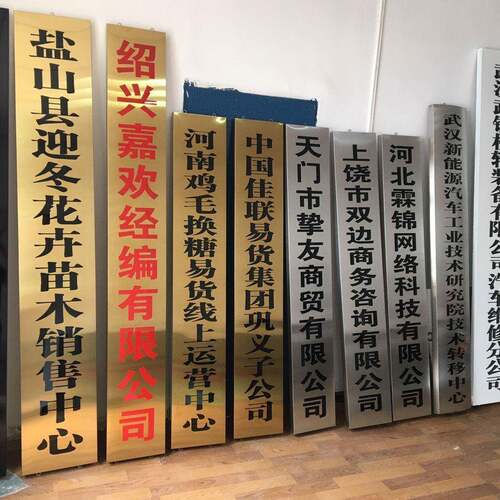 盐山县迎冬花卉苗木销售中心
绍兴嘉欢经编有限公司
河南鸡毛换糖易货线上运营中心
中国佳联易货集团巩义子公司
天门市挚友商贸有限公司
上饶市双边商务咨询有限公司
河北霖锦网络科技有限公司
武汉新能源汽车工业技术研究院技术转移中心
装备有限公司汽车维修分公司